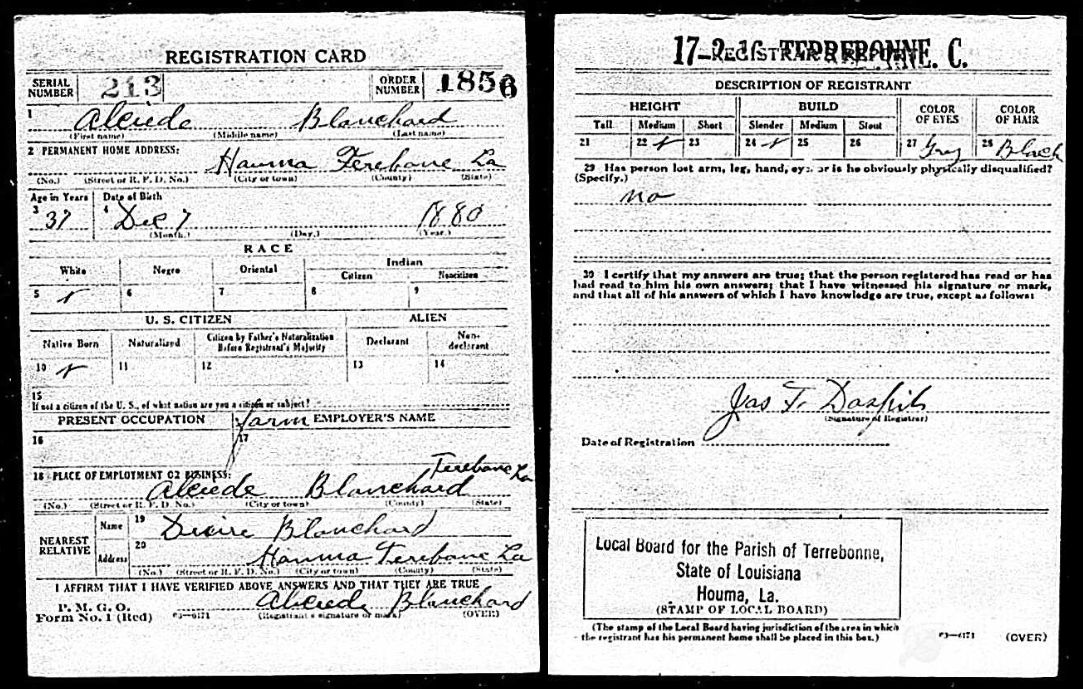 REGISTRATION CARD
SERIAL NUMBER 213 ORDER NUMBER 1856
1 Alcide Blanchard
(First name) (Middle name) (Last name)
2 PERMANENT HOME ADDRESS: Hauma Terebone La
(No.) (Street or R. F. D. No.) (City or town) (County) (State)
Age in Years Date of Birth
3 37 4 Dec 7 1880
(Month.) (Day.) (Year.)
RACE
White Negro Oriental Indian
Citizen Noncitizen
5 6 7 8 9
U. S. CITIZEN ALIEN
Native Born Naturalized Citizen by Father's Naturalization Before Registrant's Majority Declarant Non-declarant
10 11 12 13 14
15
If not a citizen of the U. S., of what nation are you a citizen or subject?
PRESENT OCCUPATION farm EMPLOYER'S NAME
16 17
18 PLACE OF EMPLOYMENT OR BUSINESS: Terebone La
Alcide Blanchard
(No.) (Street or R. F. D. No.) (City or town) (County) (State)
NEAREST RELATIVE Name 19 Blanchard
Address 20 Hauma Terebone La
(No.) (Street or R. F. D. No.) (City or town) (County) (State)
I AFFIRM THAT I HAVE VERIFIED ABOVE ANSWERS AND THAT THEY ARE TRUE
P. M. G. O.
Form No. 1 (Red) 03—6171 Alcide Blanchard
(Registrant's signature or mark) (OVER)
17-2-16 TERREBONNE. C.
REGISTRAR'S REPORT
DESCRIPTION OF REGISTRANT
HEIGHT BUILD COLOR OF EYES COLOR OF HAIR
Tall Medium Short Slender Medium Stout
21 22 23 24 25 26 27 Gray 28 Black
29 Has person lost arm, leg, hand, eye, or is he obviously physically disqualified?
(Specify.)
no
30 I certify that my answers are true; that the person registered has read or has
had read to him his own answers; that I have witnessed his signature or mark,
and that all of his answers of which I have knowledge are true, except as follows:
Jas F.
(Signature of Registrar)
Date of Registration
Local Board for the Parish of Terrebonne,
State of Louisiana
Houma, La.
(STAMP OF LOCAL BOARD)
(The stamp of the Local Board having jurisdiction of the area in which
the registrant has his permanent home shall be placed in this box.)
03—6171 (OVER)